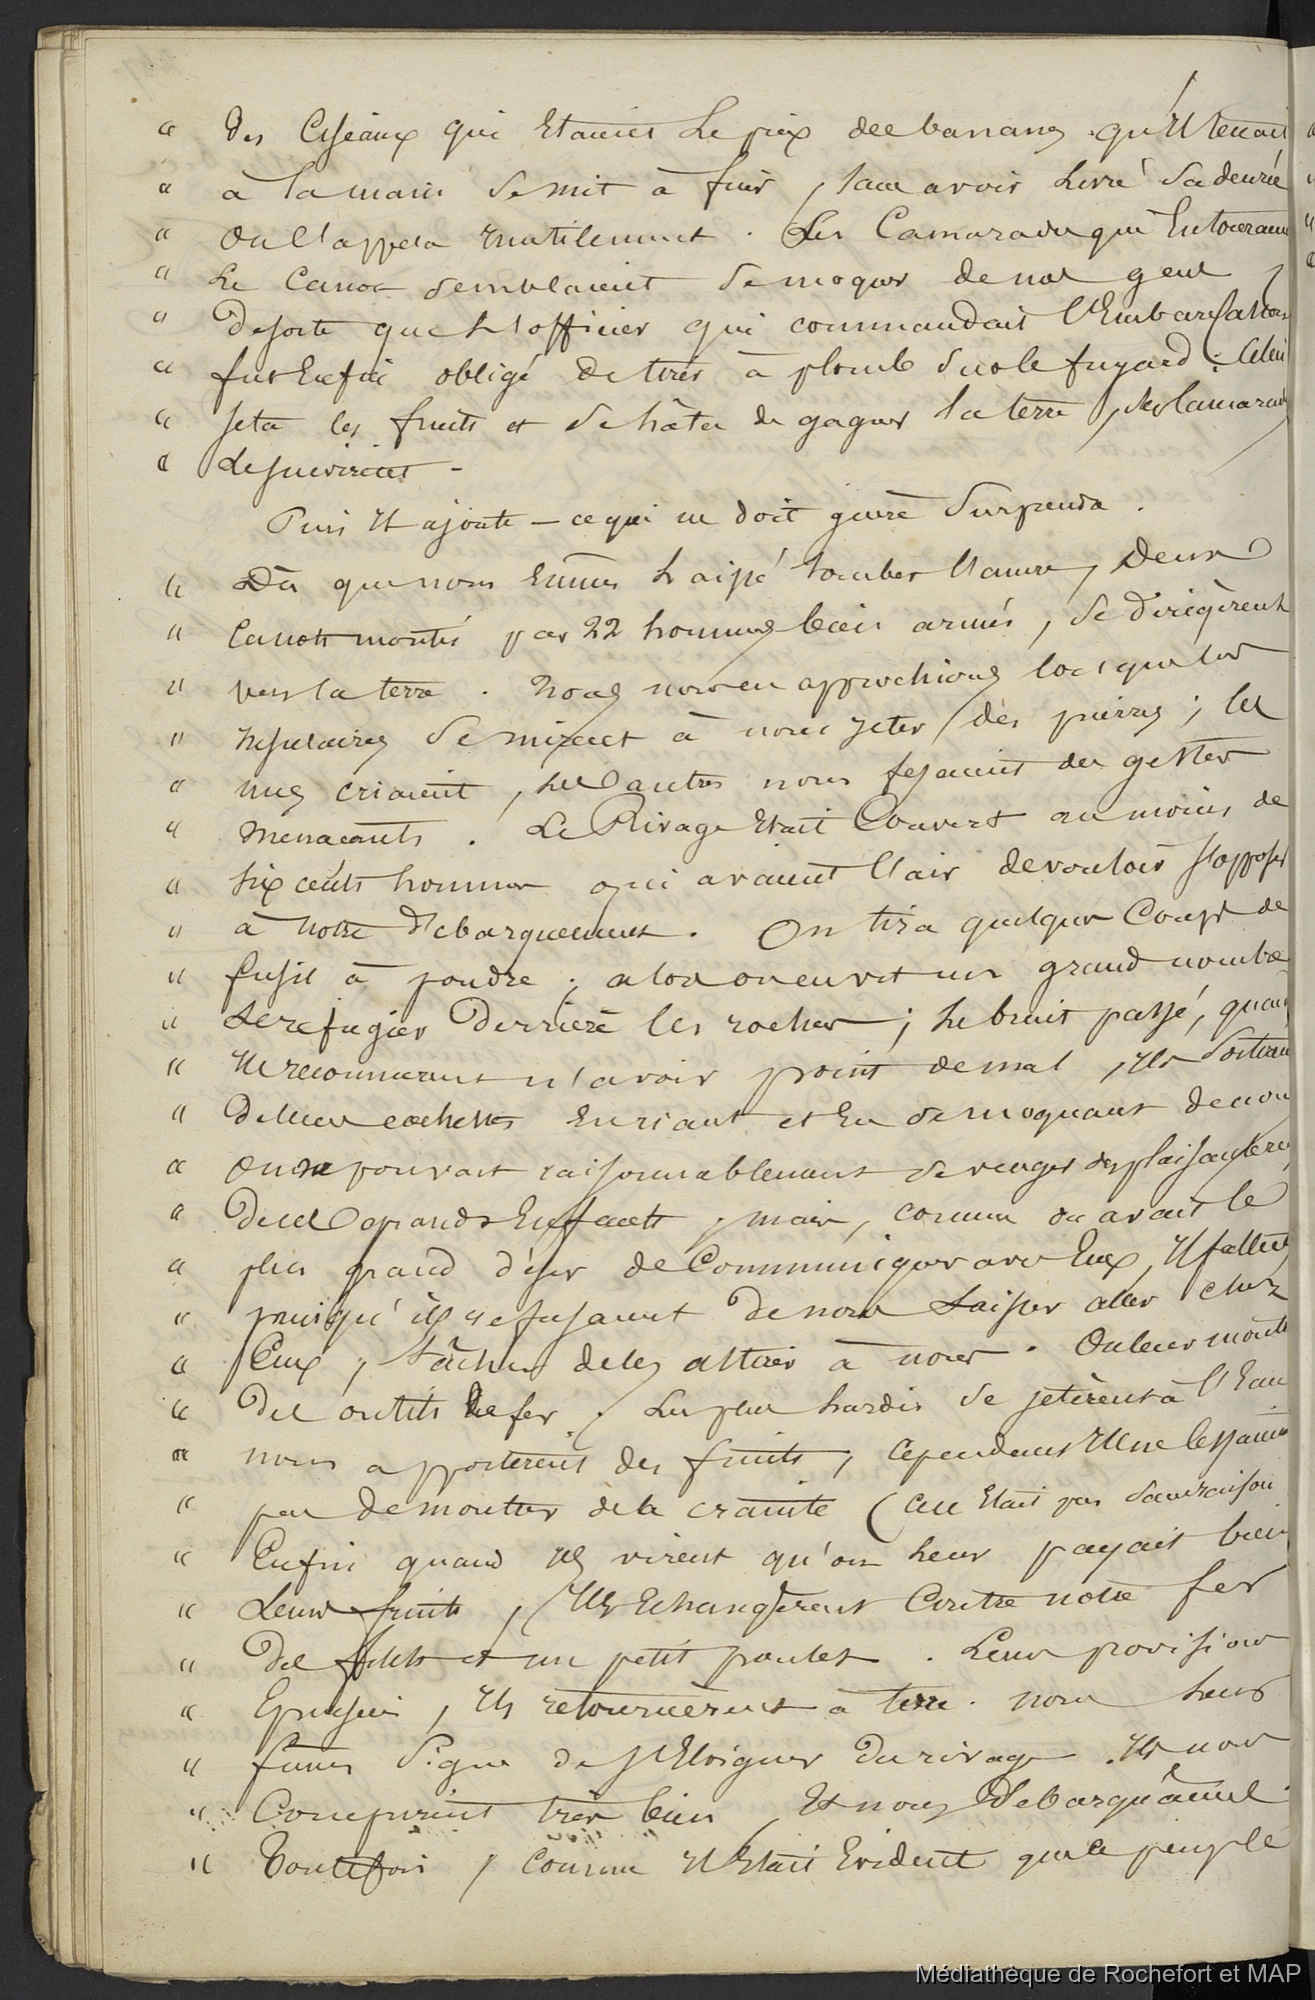 " des Ciseaux qui Etaient le prix des bananes qu'Il tenait
" à la main se mit à fuir, sans avoir livré sa denrée
" On l'appela Inutilement. Les Camarades qui Entouraient
" Le Canot semblaient se moquer de nos gens,
" de sorte que l'officier qui commandait l'Embarcation
" fut Enfin obligé de tirer à plomb sur le fuyard. Celui
" jeta les fruits et se hâta de gagner la terre, ses Camarades
" le suivirent -
Puis Il ajoute - ce qui ne doit guère Surprendre.
" Dès que nous Eûmes laissé tomber l'ancre, Deux
" Canots montés par 22 hommes bien armés, se dirigèrent
" vers la terre. Nous nous en approchions lorsque les
" Insulaires se mirent à nous jeter des pierres; les
" uns criaient, les autres nous fesaient des gestes
" menacants. Le Rivage Etait Couvert au moins de
" six cents hommes qui avaient l'air de vouloir s'opposer
" à notre débarquement. On tira quelques Coups de
" fusil à poudre; alors on en vit un grand nombre
" se refugier Derrière les rochers; le bruit passé, quand
" Ils reconnurent n'avoir point de mal, Ils Sortirent
" de leurs cachettes En riant et En se moquant de nous
" On ne pouvait raisonnablement se venger des plaisanteries
" de ces grands Enfants, mais, comme on avait le
" plus grand désir de Communiquer avec Eux, Il fallut
" puisqu'ils refusaient de nous laisser aller chez
" Eux, tâcher de les attirer à nous. On leur montra
" Des outils de fer. Les plus hardis se jetèrent à l'Eau
" nous apporterent des fruits, cependant Ils ne laissaient
" pas de montrer de la crainte (Ce n'Etait pas sans raison
" Enfin quand Ils virent qu'on leur payait bien
" Leurs fruits, Ils Echangèrent Contre notre fer
" Des filets et un petit poulet. Leurs provisions
" Epuisées, Ils retournèrent à terre. Nous leurs
" fîmes Signe de s'Eloigner du rivage. Ils nous
" Comprirent très bien, Et nous débarquâmes.
" Toutefois, comme Il Etait Evident que ce peuple
Médiathèque de Rochefort et MAP